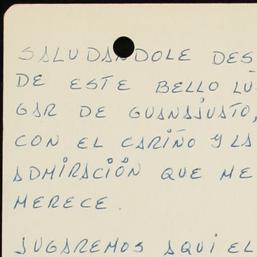 SALUDANDOLE DES
DE ESTE BELLO LU
GAR DE GUANAJUATO,
CON EL CARIÑO Y LA
ADMIRACIÓN QUE ME
MERECE.
JUGAREMOS AQUI EL